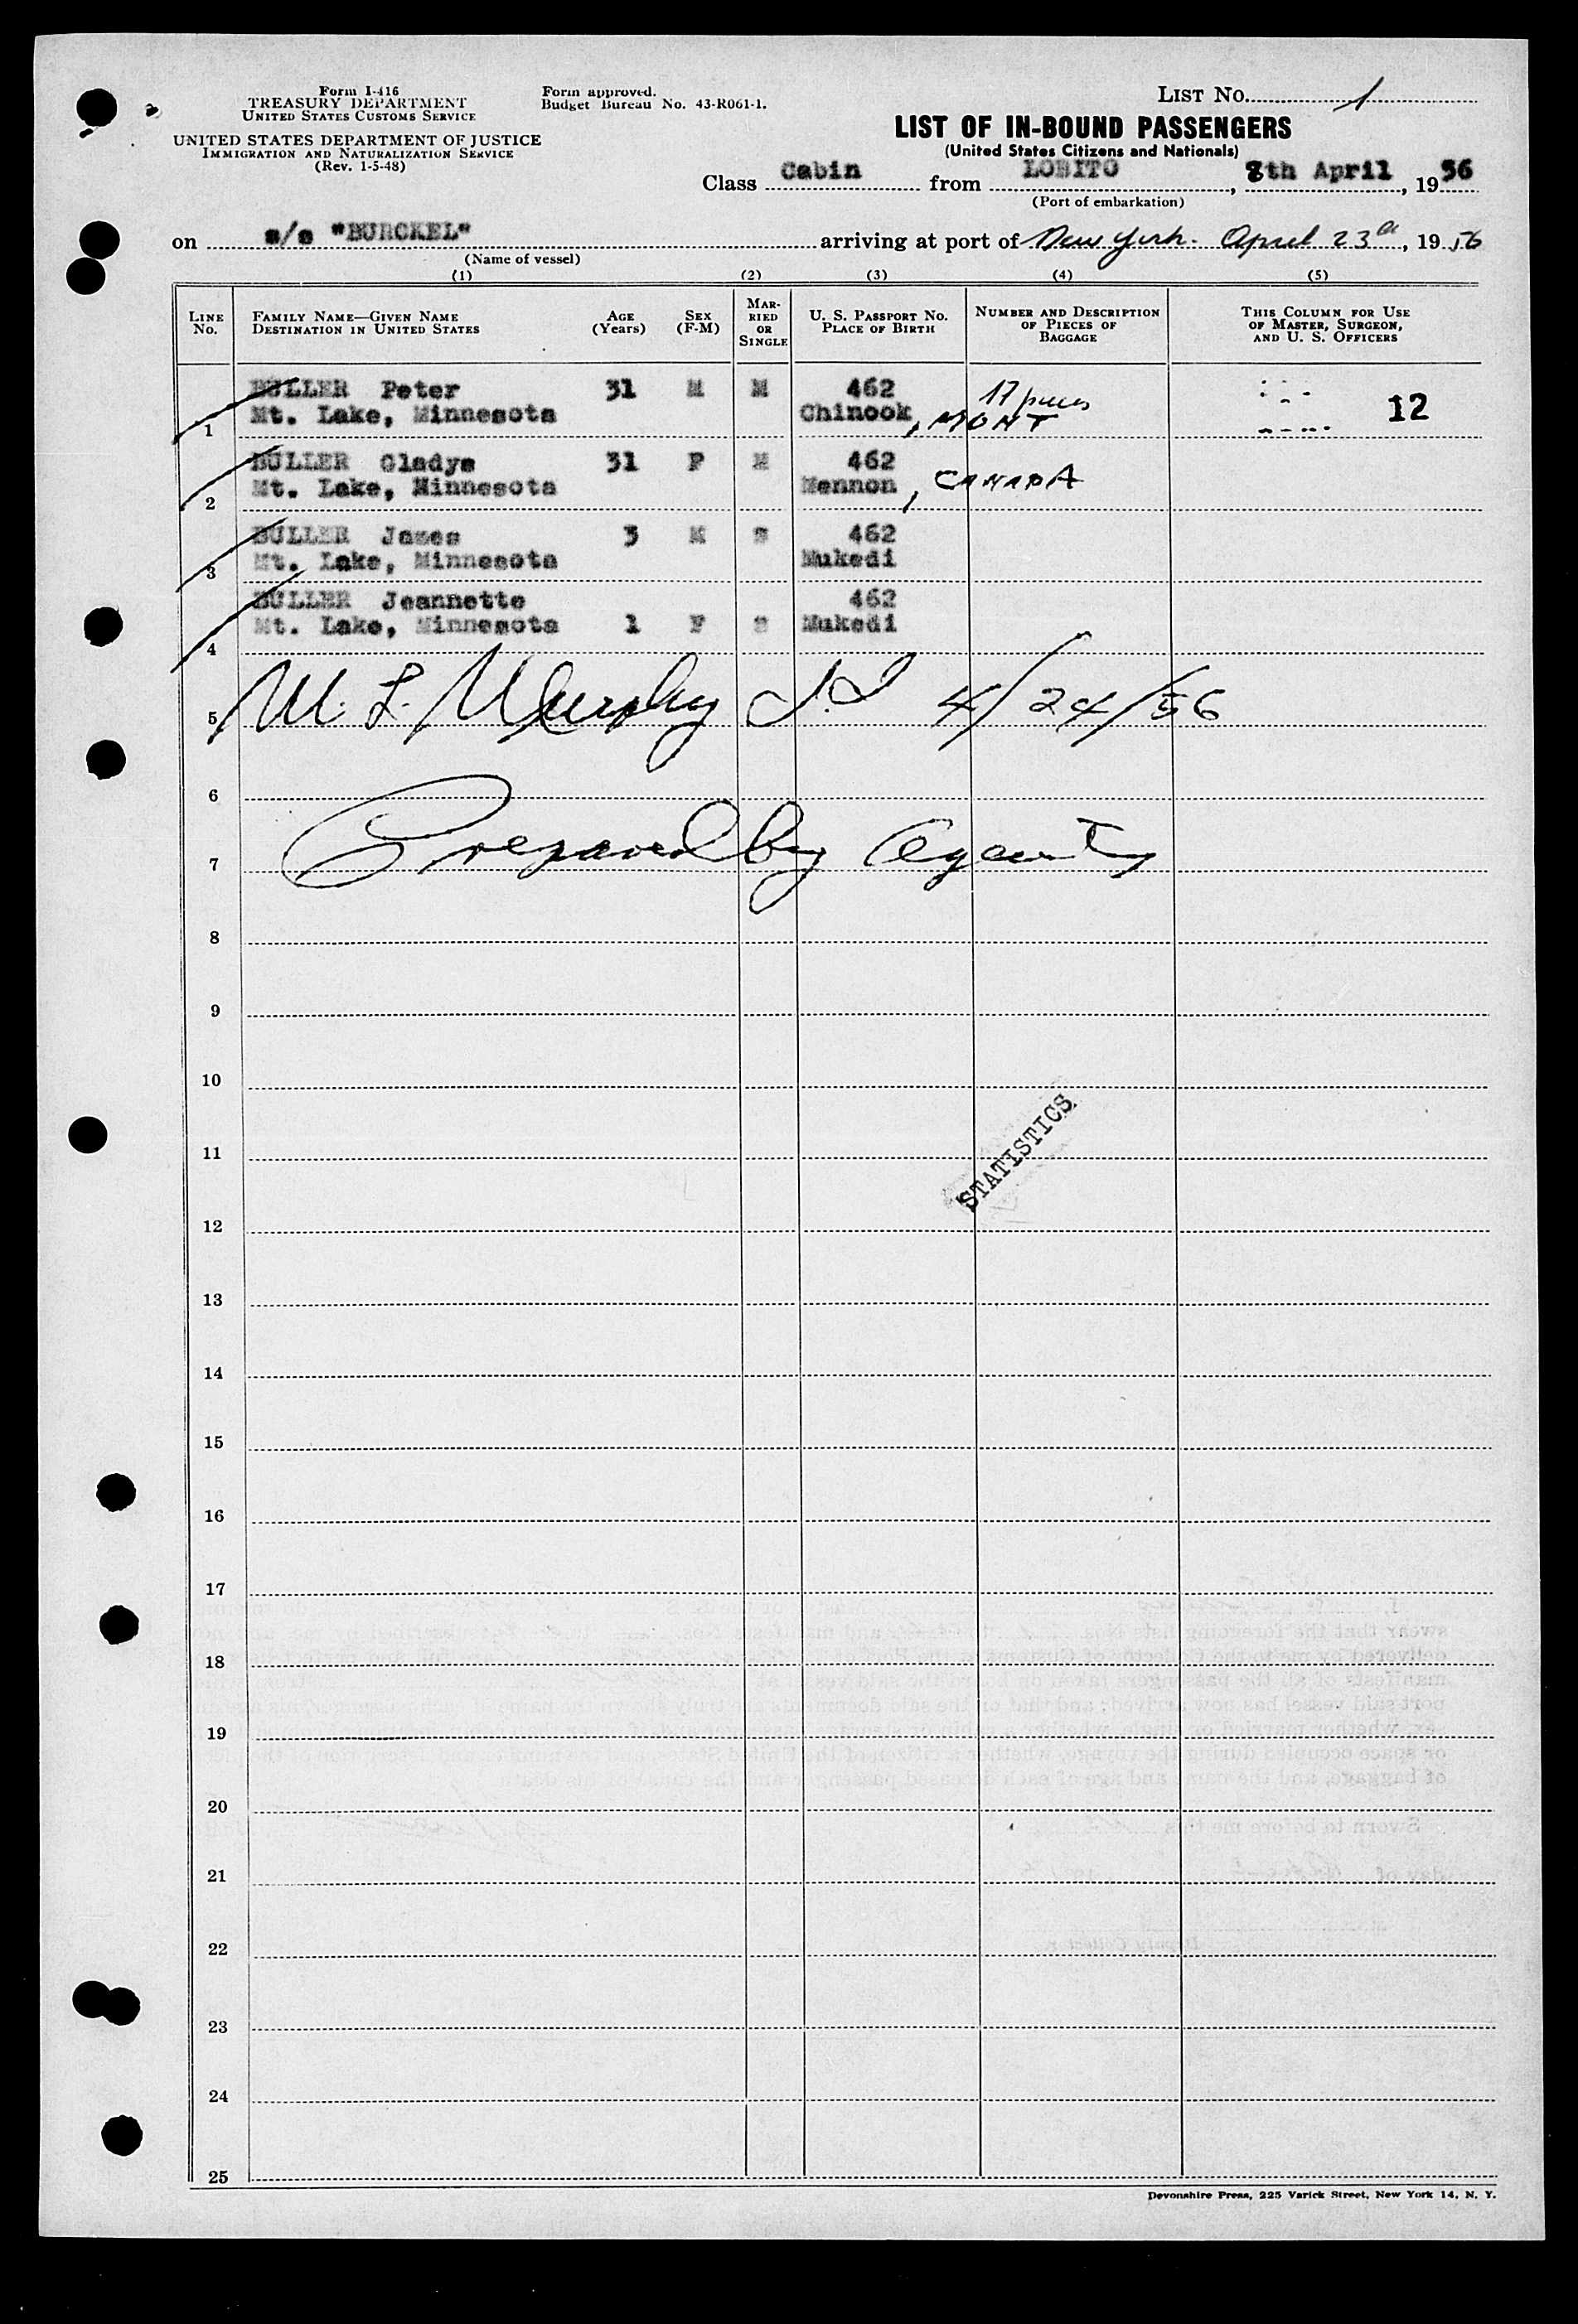 Form I-416
TREASURY DEPARTMENT
UNITED STATES CUSTOMS SERVICE
UNITED STATES DEPARTMENT OF JUSTICE
IMMIGRATION AND NATURALIZATION SERVICE
(Rev. 1-5-48)
Form approved.
Budget Bureau No. 43-R061-1.
LIST No. 1
LIST OF IN-BOUND PASSENGERS
(United States Citizens and Nationals)
Class Cabin from LOBITO, 8th April, 1956
(Port of embarkation)
on s/s "BURCKEL" arriving at port of New York. April 23d, 1956
(Name of vessel)
(1) (2) (3) (4) (5)
LINE No. FAMILY NAME—GIVEN NAME DESTINATION IN UNITED STATES AGE (Years) SEX (F-M) MARRIED OR SINGLE U. S. PASSPORT No. PLACE OF BIRTH NUMBER AND DESCRIPTION OF PIECES OF BAGGAGE THIS COLUMN FOR USE OF MASTER, SURGEON, AND U. S. OFFICERS
BULLER Peter 31 M M 462 17 pieces
1 Mt. Lake, Minnesota Chinook, MONT 12
BULLER Gladys 31 F M 462
2 Mt. Lake, Minnesota Mennon, CANADA
BULLER James 3 M S 462
3 Mt. Lake, Minnesota Mukedi
BULLER Jeannette 462
4 Mt. Lake, Minnesota 1 F S Mukedi
5 M. L. Murphy I.I 4/24/56
6
7 Prepared by Agents
8
9
10
STATISTICS
11
12
13
14
15
16
17
18
19
20
21
22
23
24
25
Devonshire Press, 225 Varick Street, New York 14, N. Y.